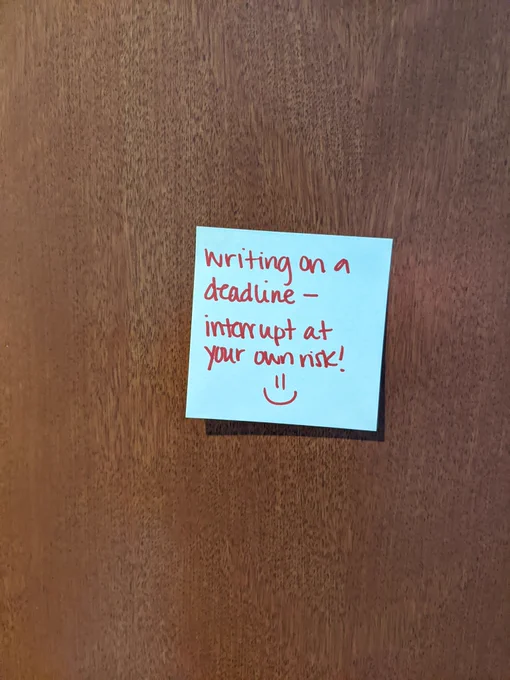 writing on a
deadline –
interrupt at
your own risk!